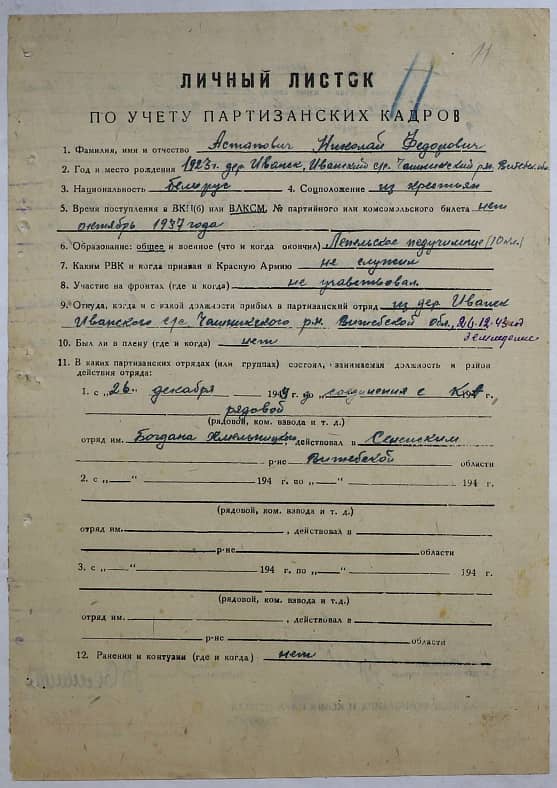 11
ЛИЧНЫЙ ЛИСТОК
ПО УЧЕТУ ПАРТИЗАНСКИХ КАДРОВ
1. Фамилия, имя и отчество Астапович Николай Федорович
2. Год и место рождения 1923г. дер. Иванск, Иванский с/с. Чашникский р-н. Витебской обл.
3. Национальность белорус 4. Соцположение из крестьян
5. Время поступления в ВКП(б) или ВЛКСМ, № партийного или комсомольского билета нет
октябрь 1937 года
6. Образование: общее и военное (что и когда окончил) Лепельское педучилище (10 кл.)
7. Каким РВК и когда призван в Красную Армию не служил
8. Участие на фронтах (где и когда) не участвовал.
9. Откуда, когда и с какой должности прибыл в партизанский отряд из дер. Иванск
Иванского с/с Чашникского р-н. Витебской обл., 26.12.43 год
земледелие
10. Был ли в плену (где и когда) нет
11. В каких партизанских отрядах (или группах) состоял, занимаемая должность и район
действия отряда:
1. с „26“ декабря 194 г. до соединения с КА 194 г.,
рядовой
(рядовой, ком. взвода и т. д.)
отряд им. Богдана Хмельницкого действовал в Сенским
р-не Витебской области
2. с „—“ 194 г. по „—“ 194 г.
(рядовой, ком. взвода и т. д.)
отряд им. , действовал в
р-не области
3. с „—“ 194 г. по „—“ 194 г.
(рядовой, ком. взвода и т. д.)
отряд им. , действовал в
р-не области
12. Ранения и контузии (где и когда) нет